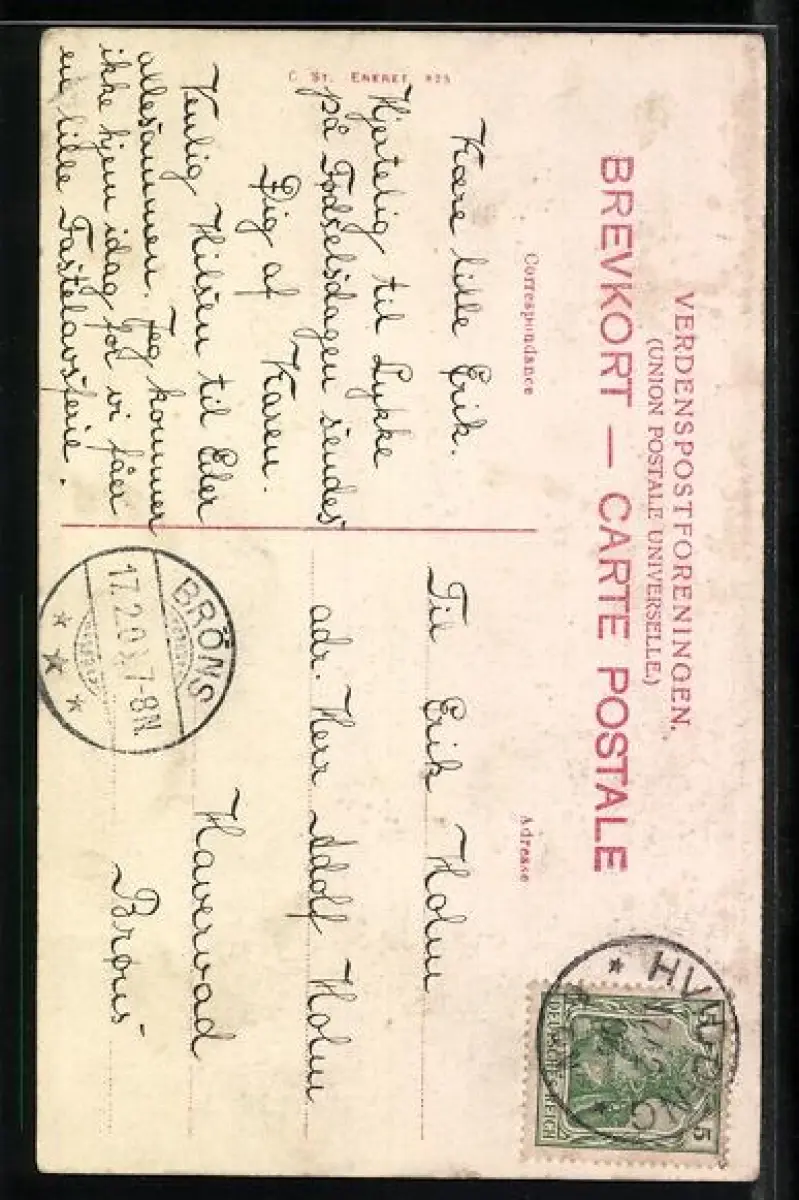 VERDENSPOSTFORENINGEN.
(UNION POSTALE UNIVERSELLE.)
BREVKORT — CARTE POSTALE
Correspondance
Adresse
Kære lille Erik.
Hjertelig til Lykke
på Fødselsdagen sendes
Dig af Karen.
Venlig Hilsen til Eder
allesammen. Jeg kommer
ikke hjem idag for vi fåer
en lille Fastelavnsferie.
C. St. Eneret 825
Til Erik Holm
adr. Herr Adolf Holm
Haverwad
Brøns
BRÖNS
17.2.0 7-8N.
DEUTSCHES REICH
5